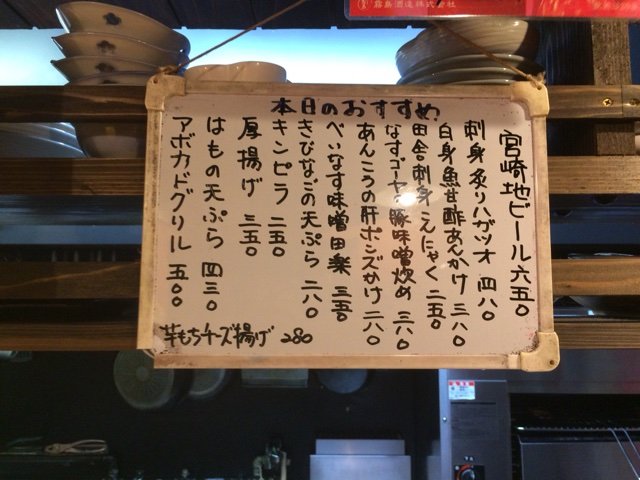 霧島酒造株式会社
本日のおすすめ!
宮崎地ビール 六五〇
刺身 炙りハガツオ 四八〇
白身魚甘酢あんかけ 三八〇
田舎刺身こんにゃく 二五〇
なすゴーヤの豚味噌炒め 三六〇
あんこうの肝ポンズかけ 二八〇
べいなす味噌田楽 三五〇
きびなごの天ぷら 二八〇
キンピラ 二五〇
厚揚げ 三五〇
はもの天ぷら 四三〇
アボカドグリル 五〇〇
芋もちチーズ揚げ 280